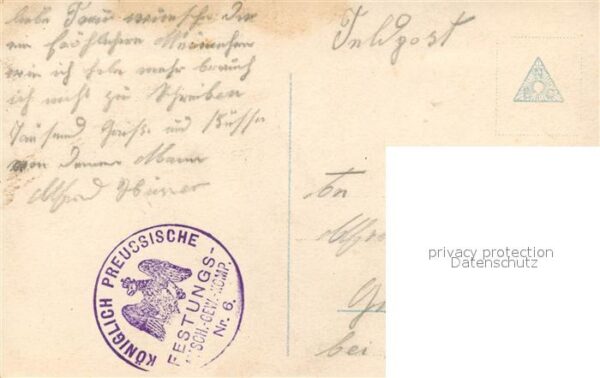 liebe Frau wünsche dir
ein fröhliches
wie ich habe mehr brauch
ich nicht zu schreiben
Tausend Grüße und Küsse
von deinem Mann
Alfred
Feldpost
N
B C
An
bei
KÖNIGLICH PREUSSISCHE
FESTUNGS-
MASCH.-GEW.-KOMP.
Nr. 6.
privacy protection
Datenschutz